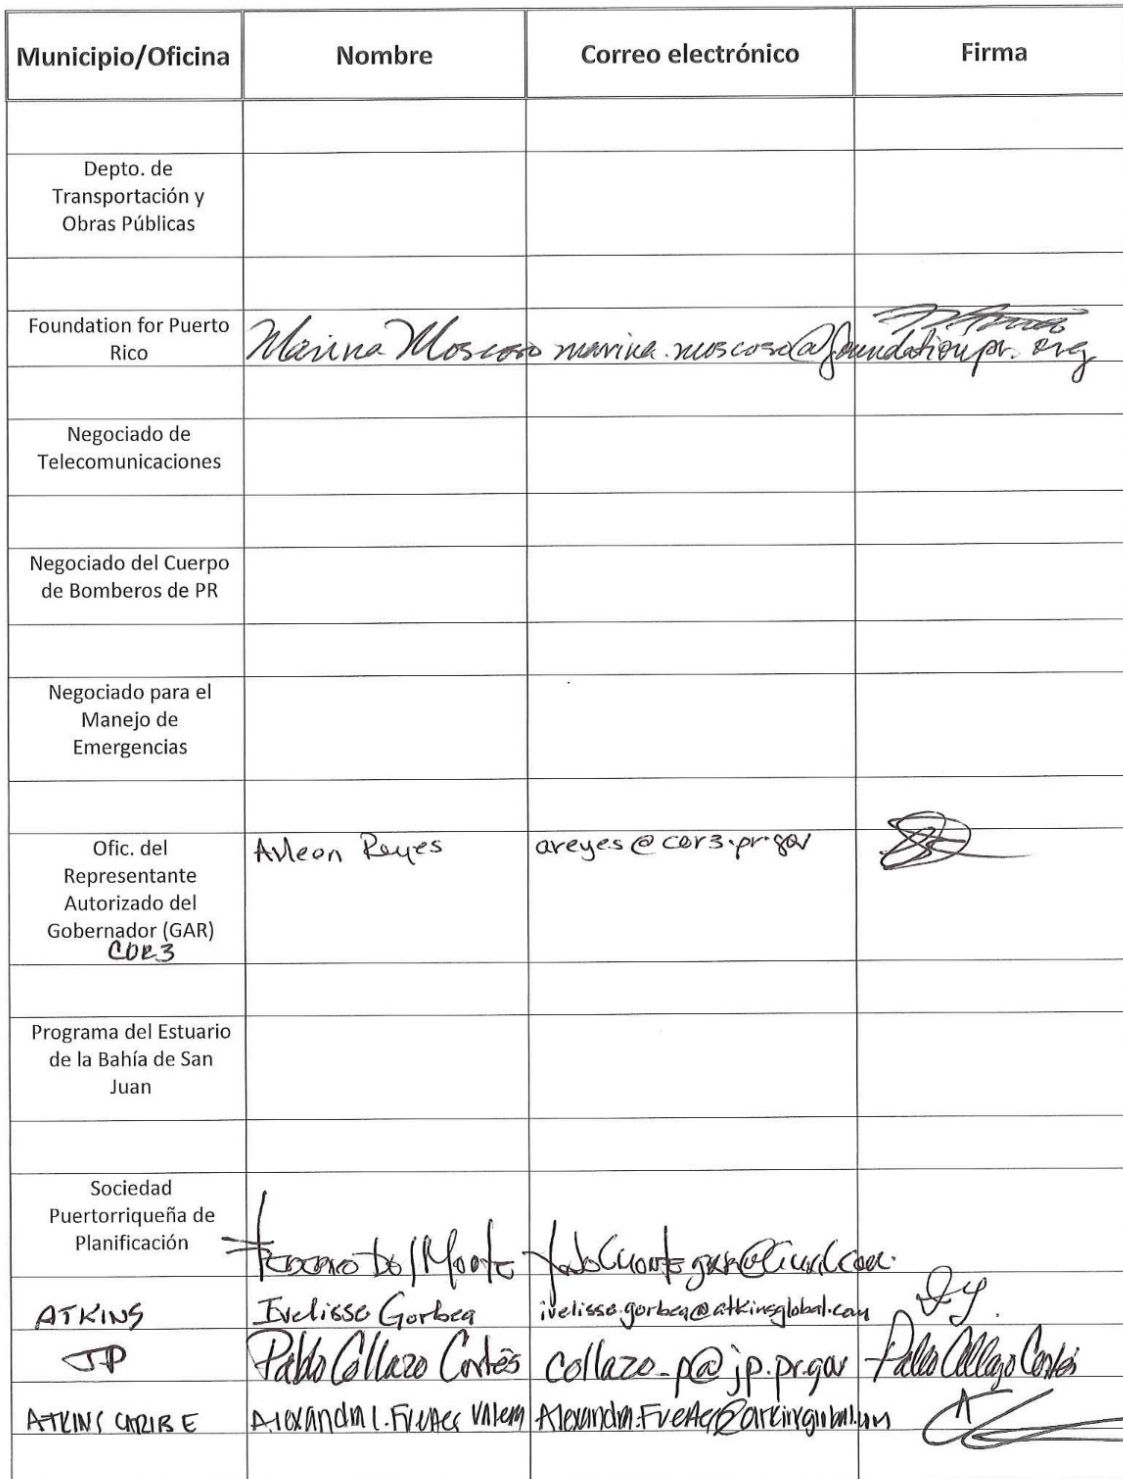 Municipio/Oficina Nombre Correo electrónico Firma
Depto. de
Transportación y
Obras Públicas
Foundation for Puerto
Rico
Marina Moscoso marina.moscoso@foundationpr.org
Negociado de
Telecomunicaciones
Negociado del Cuerpo
de Bomberos de PR
Negociado para el
Manejo de
Emergencias
Ofic. del
Representante
Autorizado del
Gobernador (GAR)
COR3
Arleen Reyes areyes@cor3.pr.gov
Programa del Estuario
de la Bahía de San
Juan
Sociedad
Puertorriqueña de
Planificación
Federico Del Monte
ATKINS Ivelisse Gorbea ivelisse.gorbea@atkinsglobal.com
JP Pablo Collazo Cortés collazo_p@jp.pr.gov Pablo Collazo Cortés
ATKINS CARIBE